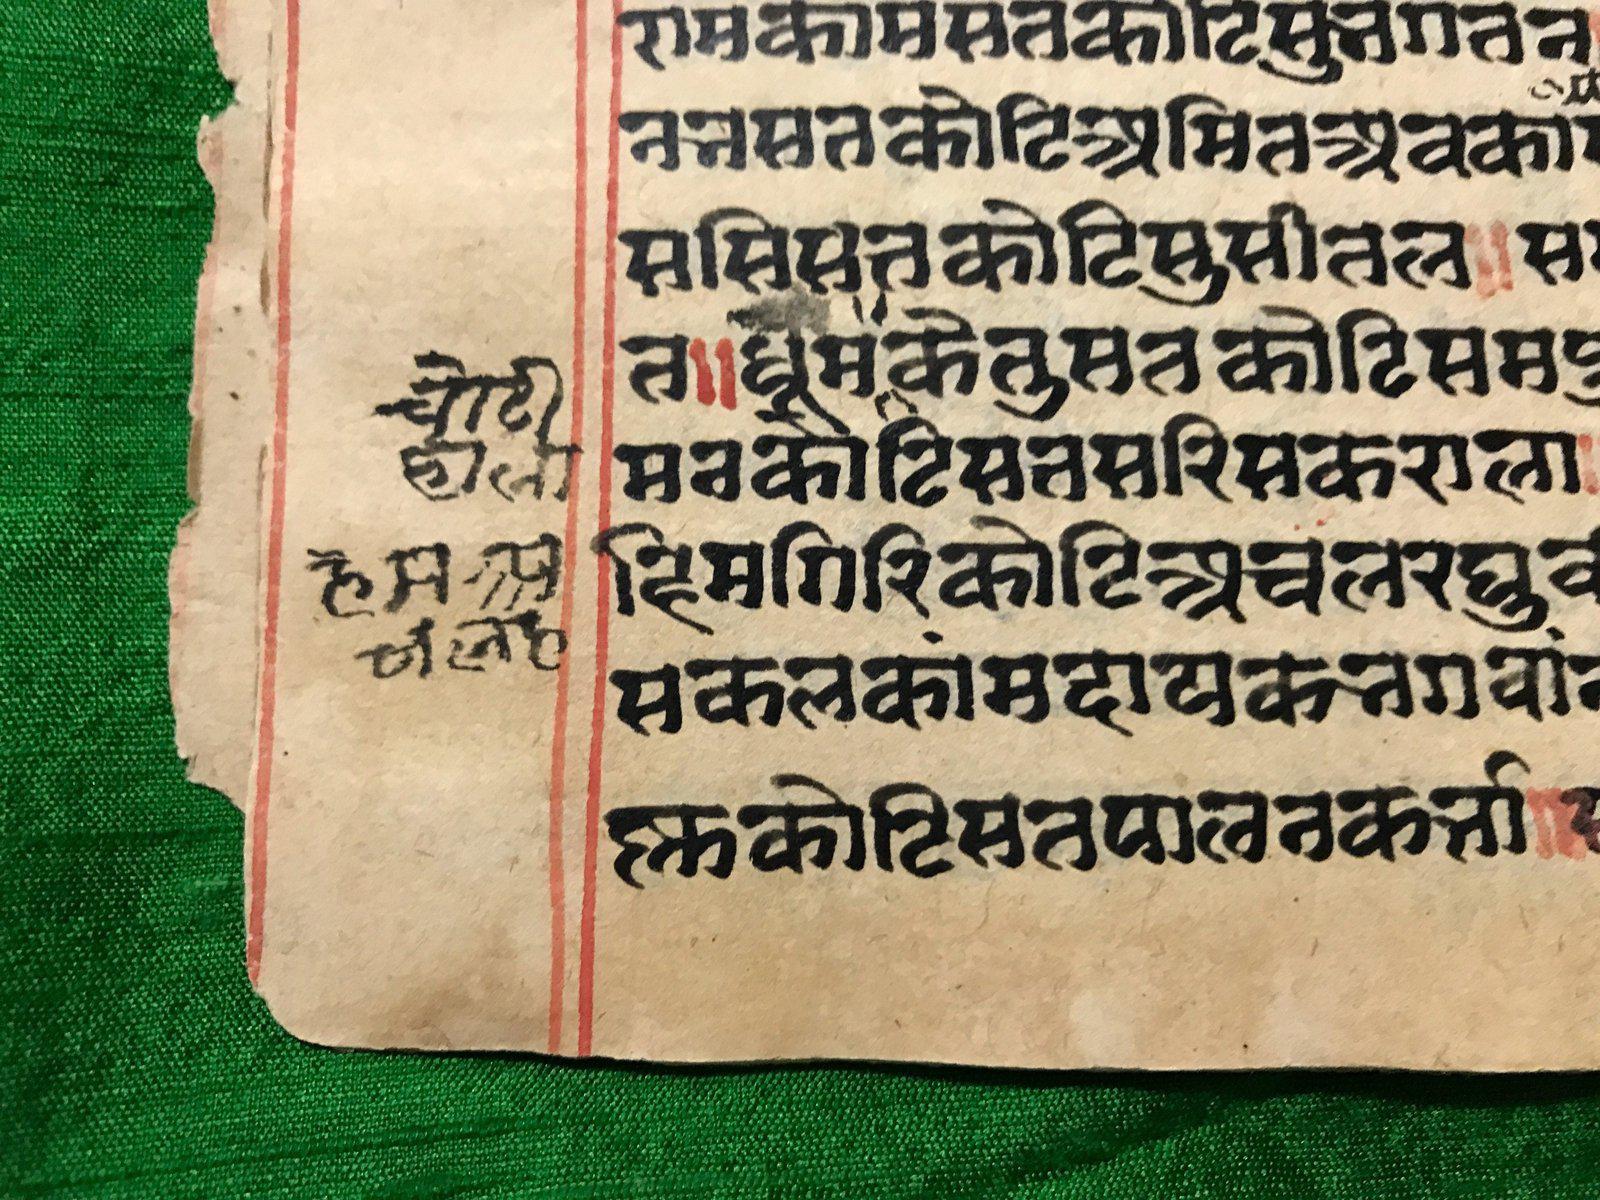 रामकामसतकोटिसुभगतन
नभसतकोटिअमितअवकास
ससिसतकोटिसुसीतल॥ सम
त॥धूमकेतुसतकोटिसमदु
मनकोटिसतसरिसकराला॥
हिमगिरिकोटिअचलरघुबी
सकलकांमदायकभगवांन
कोटिसतपालनकर्त्ता॥
चोटी